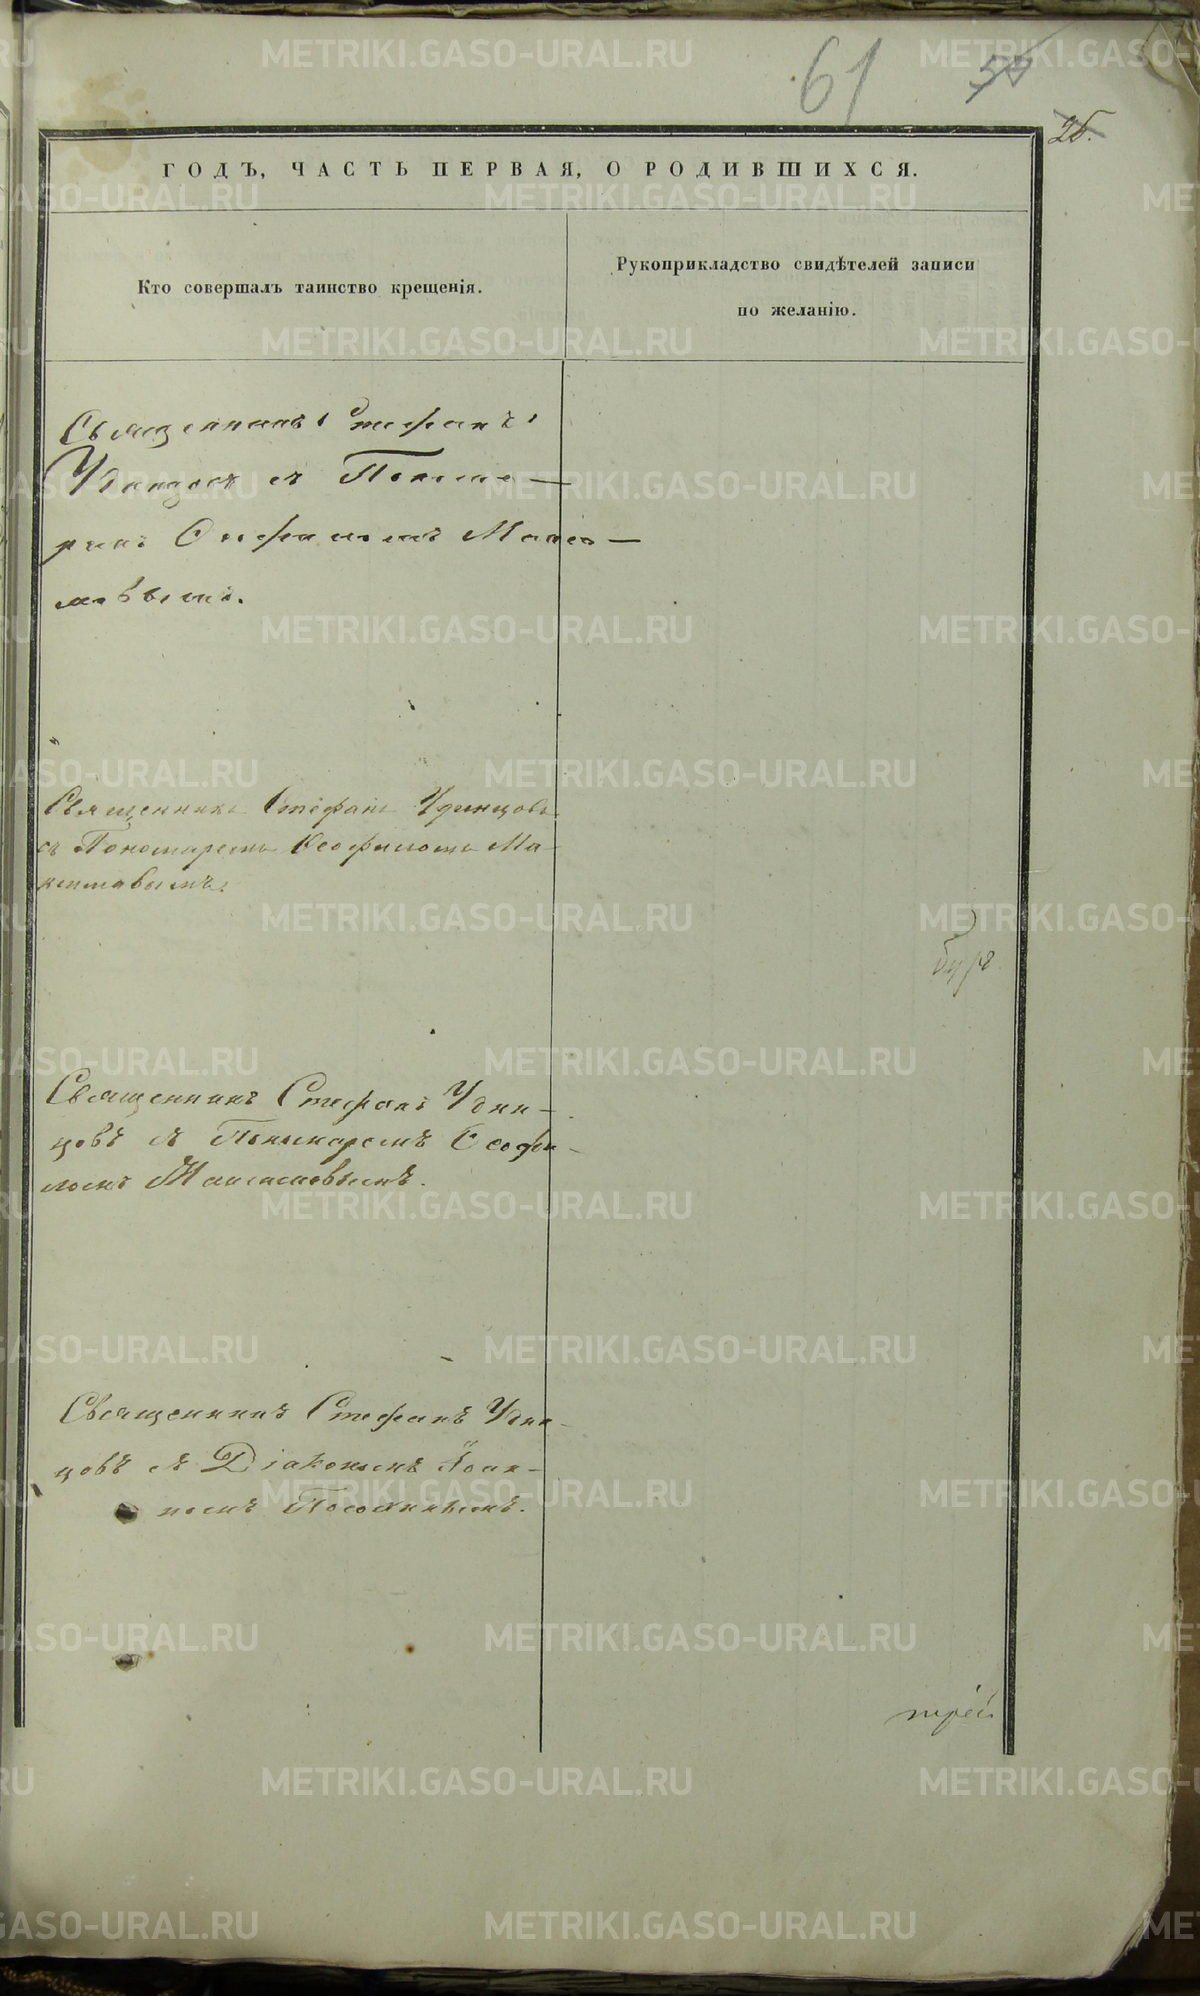 61
50
26.
ГОДЪ, ЧАСТЬ ПЕРВАЯ, О РОДИВШИХСЯ.
Кто совершалъ таинство крещенія.
Рукоприкладство свидѣтелей записи
по желанію.
Священникъ Стефанъ
Удинцовъ съ Понома-
ремъ Ѳеофиломъ Макси-
мовымъ.
Священникъ Стефанъ Удинцовъ
съ Пономаремъ Ѳеофиломъ Ма-
ксимовымъ.
Священникъ Стефанъ Удин-
цовъ съ Пономаремъ Ѳеофи-
ломъ Максимовымъ.
Священникъ Стефанъ Удин-
цовъ съ Діакономъ Іоан-
номъ
METRIKI.GASO-URAL.RU